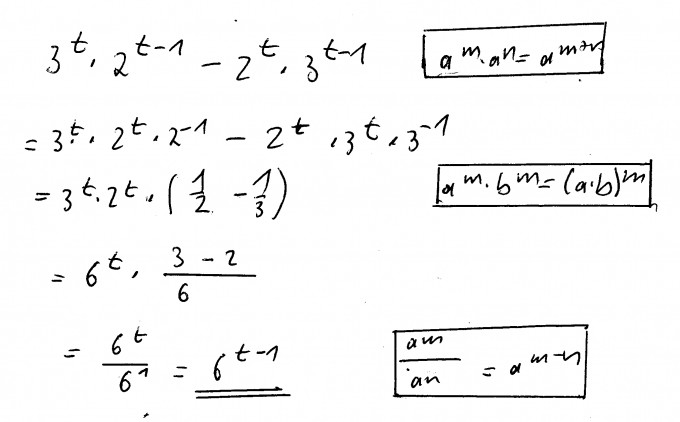 3^t · 2^{t-1} - 2^t · 3^{t-1}
a^m · a^n = a^{m+n}
= 3^t · 2^t · 2^{-1} - 2^t · 3^t · 3^{-1}
= 3^t · 2^t · (1/2 - 1/3)
a^m · b^m = (a·b)^m
= 6^t · (3 - 2)/6
= 6^t/6^1 = 6^{t-1}
a^m/a^n = a^{m-n}